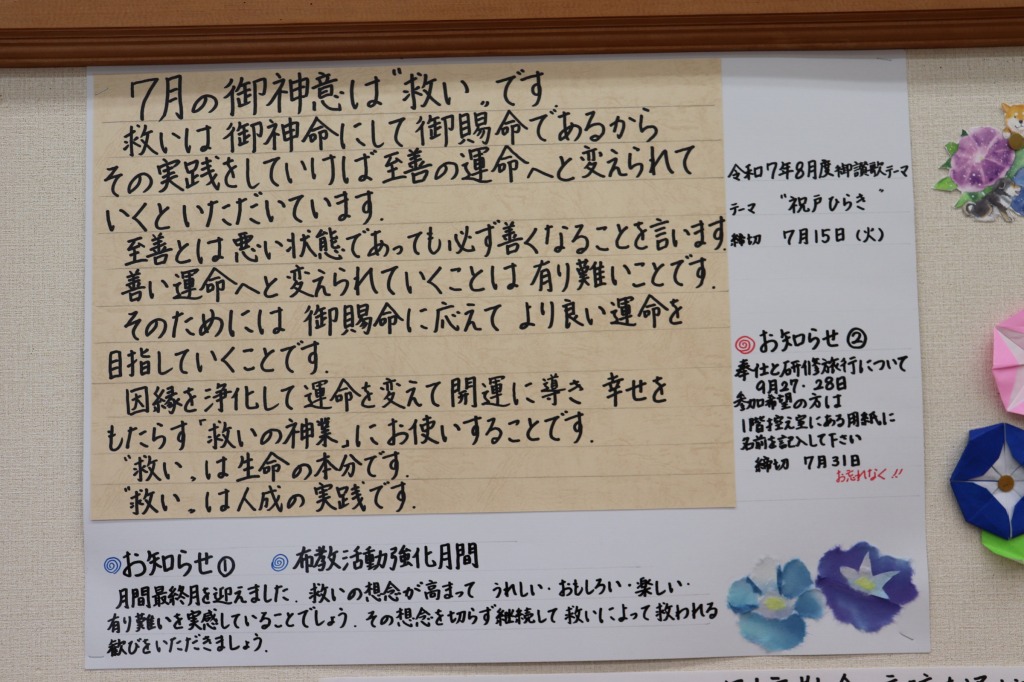 7月の御神意は〝救い〟です
救いは 御神命にして 御賜命であるから
その実践をしていけば 至善の運命へと変えられて
いくと いただいています.
至善とは 悪い状態であっても 必ず善くなることを言います.
善い運命へと 変えられていくことは 有り難いことです.
そのためには 御賜命に応えて より良い運命を
目指していくことです.
因縁を浄化して 運命を変えて 開運に導き 幸せを
もたらす「救いの神業」に お使いすることです.
〝救い〟は生命の本分です.
〝救い〟は人成の実践です.
令和7年8月度御讃歌テーマ
テーマ 〝祝戸ひらき〟
締切 7月15日(火)
お知らせ②
奉仕と研修旅行について
9月27・28日
参加希望の方は
1階控え室にある用紙に
名前を記入して下さい
締切 7月31日
お忘れなく!!
お知らせ① 布教活動強化月間
月間最終月を迎えました. 救いの想念が高まって うれしい・おもしろい・楽しい・
有り難いを実感していることでしょう. その想念を切らず継続して 救いによって救われる
歓びをいただきましょう.